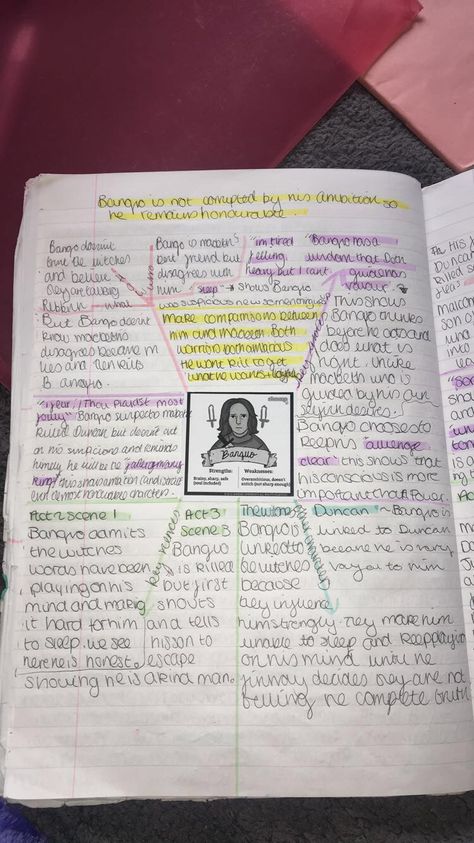 Banqo is not corrupted by his ambition so
he remains honourable.
Banqo doesnt
the witches
and believe
they are talking
rubbish - what
But Banqo doesnt
know macbeths
disagrees because m
lies and then kills
B. anyro.
Banqo is macbeth's
best friend but
disagrees with
him
"im tired
feeling
heavy but I cant
sleep" → shows Banqo
was suspicious new somenthing was
make comparisons between
him and Macbeth. Both
warriors both ambitous
He wont kill to get
what he wants + loyalty
"Banqo has a
wisdom that Doth
guide his
valour"
This shows
Banqo thinks
before he acts and
does what is
right. Unlike
macbeth who is
guided by his own
selfish desires.
Banqo chooses to
keep his "allegiance
clear" this shows that
his conscious is more
important than Power.
"I fear, / Thou playdst most
fouley" Banqo suspects macbeth
killed Duncan but doesnt act
on his suspicions and reminds
himself he will be "father of many
kings" this shows ambition (and
end almost honourable character.
twinkl
Banquo
Strengths:
Brainy, sharp, safe
(soul included)
Weaknesses:
Overambitious, doesn't
snitch (not sharp enough)
Act 2 Scene 1
Banqo admits
the witches
words have been
playing on his
mind and making
it hard for him
to sleep. we see
here he is honest.
showing he is a kind man.
key scenes
Act 3
Scene 3
Banqo
is killed
but first
shouts
and tells
his son to
escape
The witches
Banqo is
linked to
the witches
because
they influence
him strongly. They make him
unable to sleep and keep playing
on his mind until he
finnaly decides they are not
telling the complete truth
Duncan ~ Banqo is
linked to Duncan
because he is very
loyal to him